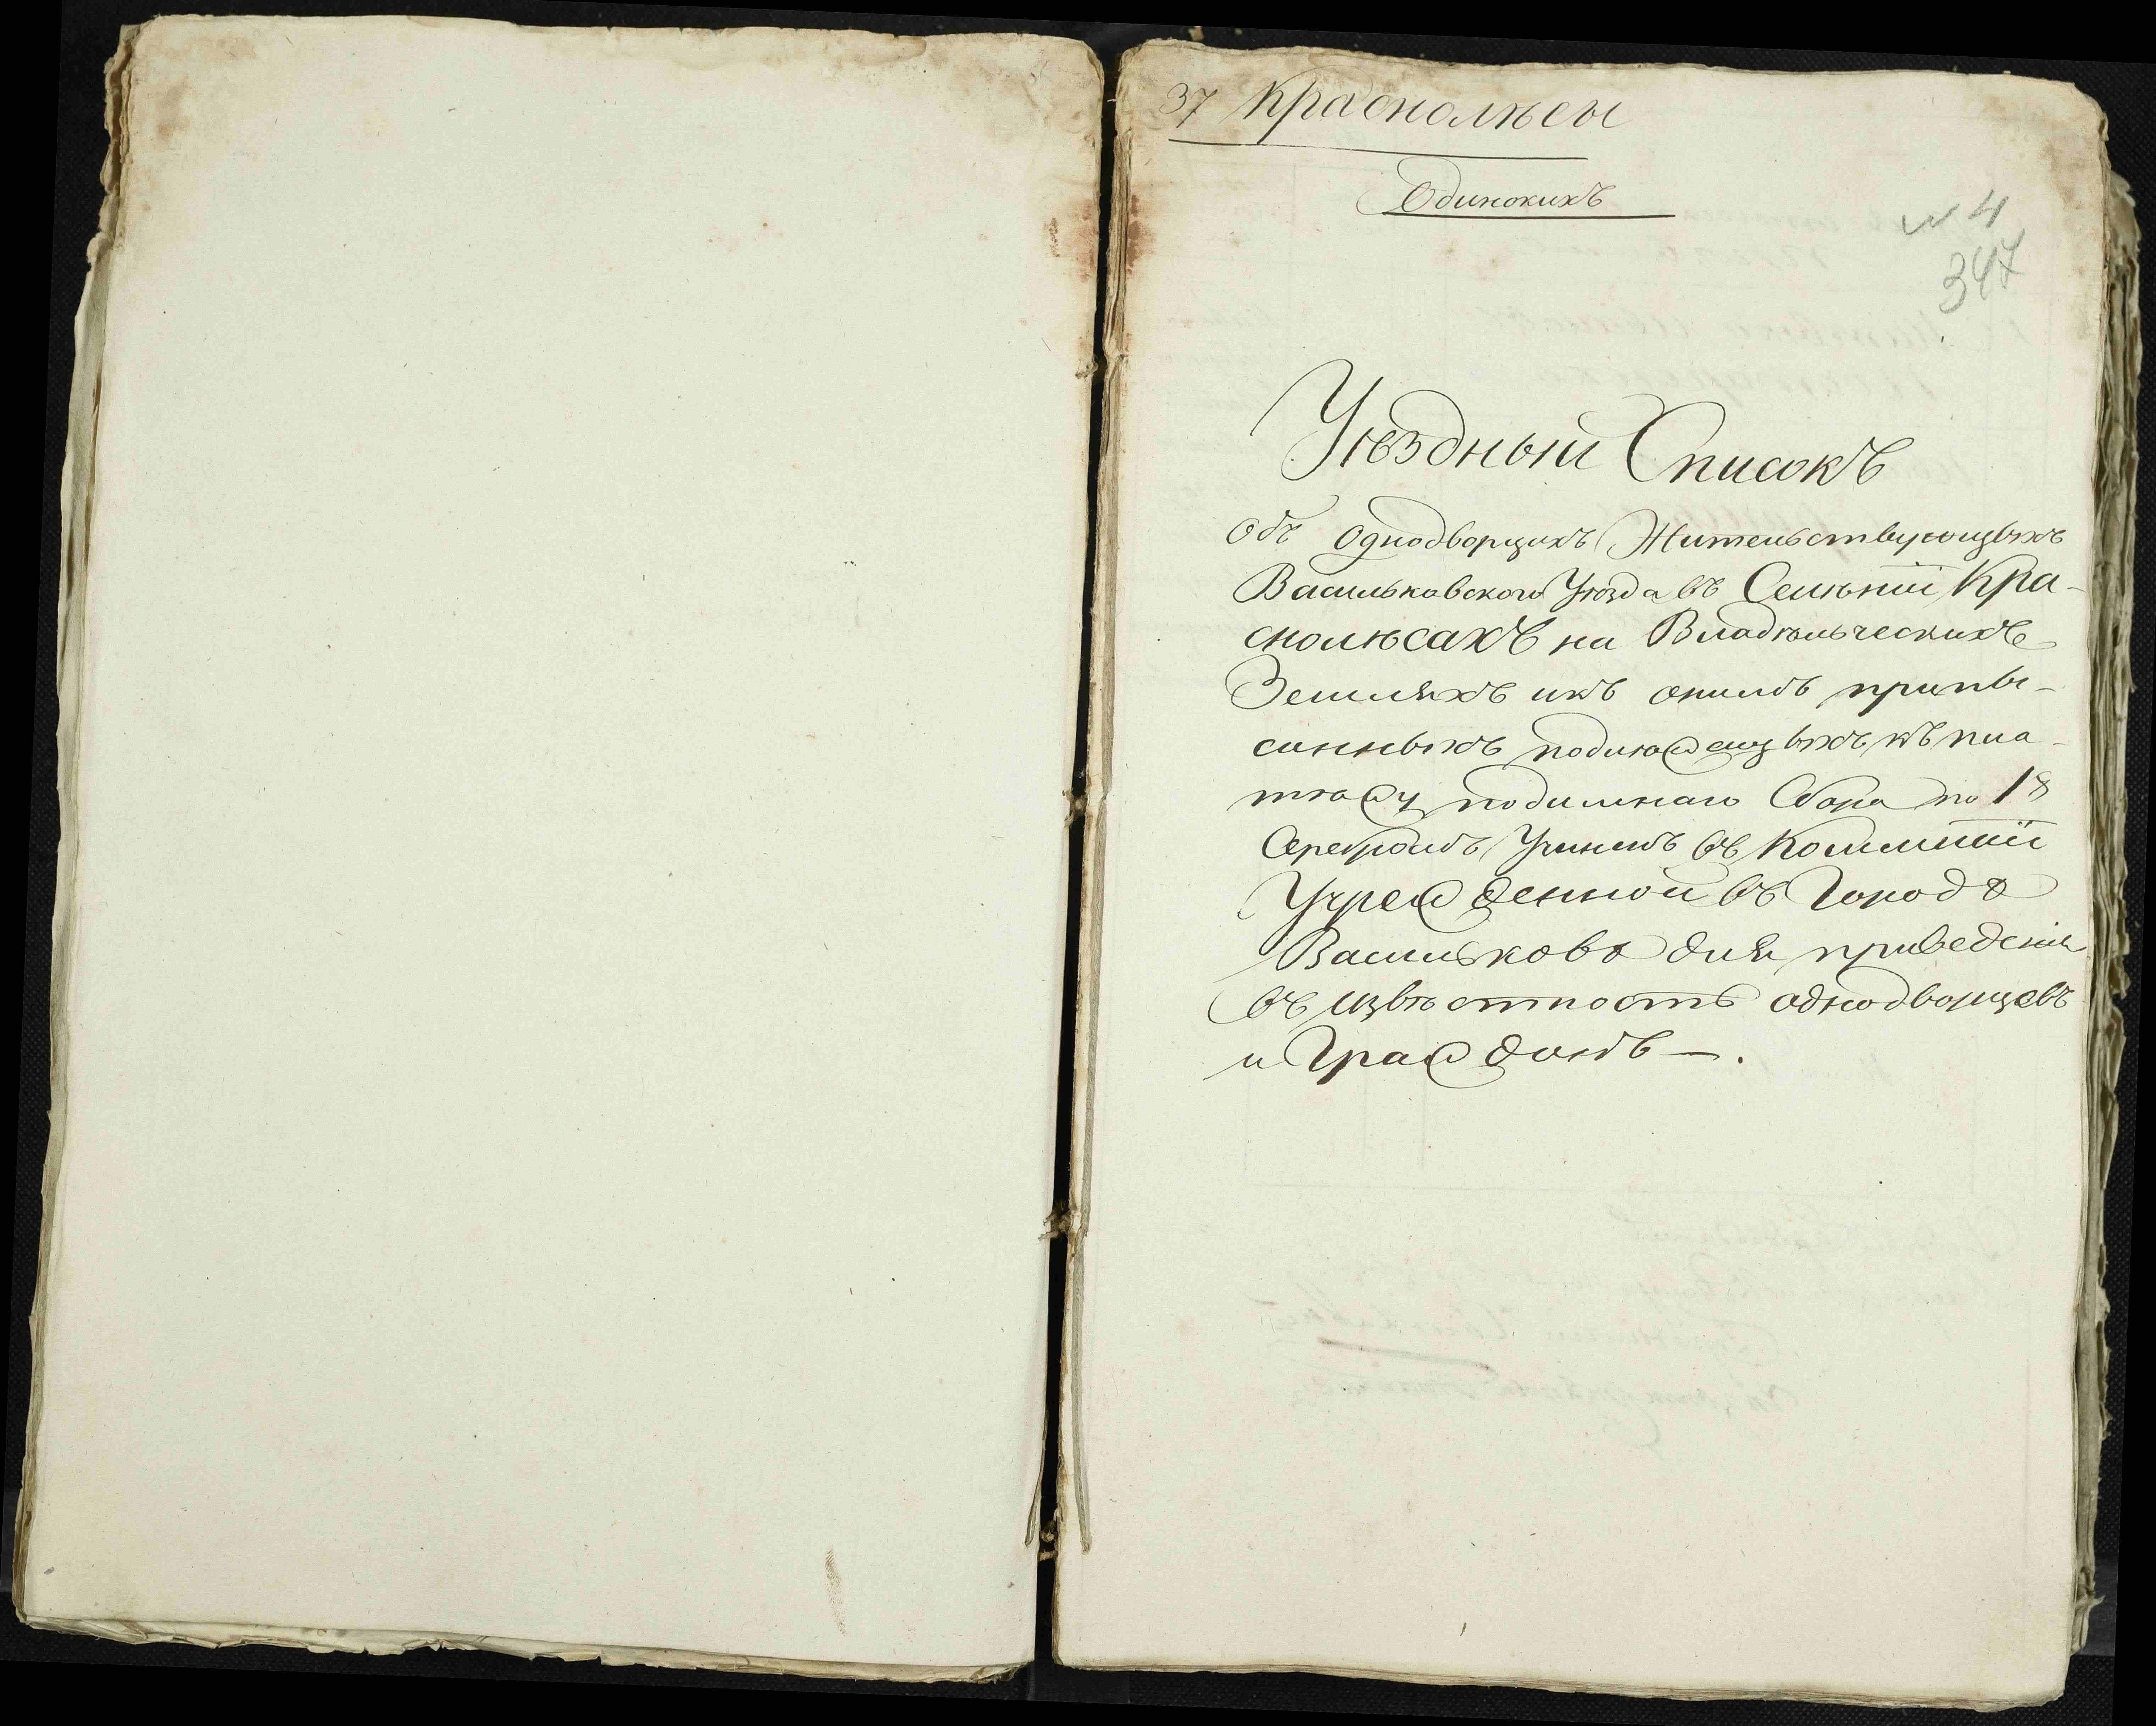 37 Краснолѣсы
Одинокихъ
№ 4
347
Уѣздный Списокъ
Объ Однодворцахъ Жительствующыхъ
Васильковского Уѣзда въ Селѣніи Кра-
снолѣсахъ на Владѣльческихъ
Земляхъ икъ онымъ припи-
санныхъ подлежащыхъ къ пла-
тежу подымнаго Сбора по 1 р
Серебромъ Учиненъ въ Коммиссіи
Учрежденной въ Городѣ
Васильковѣ для приведенія
въ извѣстность однодворцевъ
и Гражданъ —.